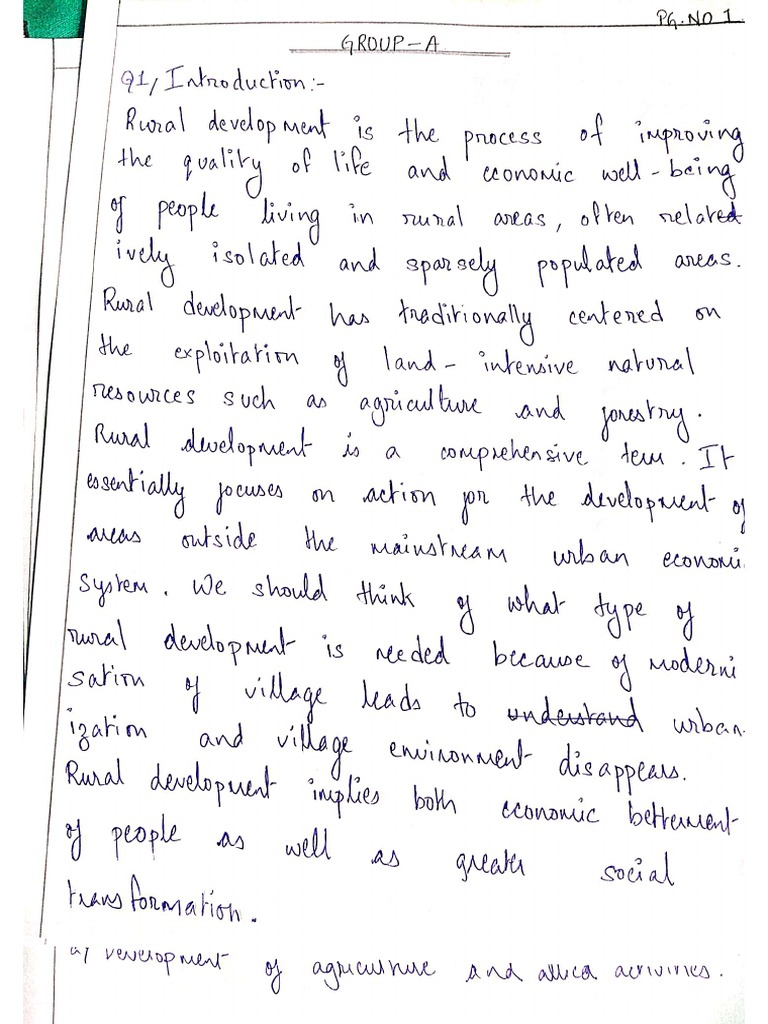 PG.NO 1
GROUP-A
Q1, Introduction:-
Rural development is the process of improving
the quality of life and economic well-being
of people living in rural areas, often related
ively isolated and sparsely populated areas.
Rural development has traditionally centered on
the exploitation of land-intensive natural
resources such as agriculture and forestry.
Rural development is a comprehensive term. It
essentially focuses on action for the development of
areas outside the mainstream urban economi
system. We should think of what type of
rural development is needed because of moderni
sation of village leads to understand urban
ization and village environment disappears.
Rural development implies both economic betterment
of people as well as greater social
transformation.
a) Development of agriculture and allied activities.